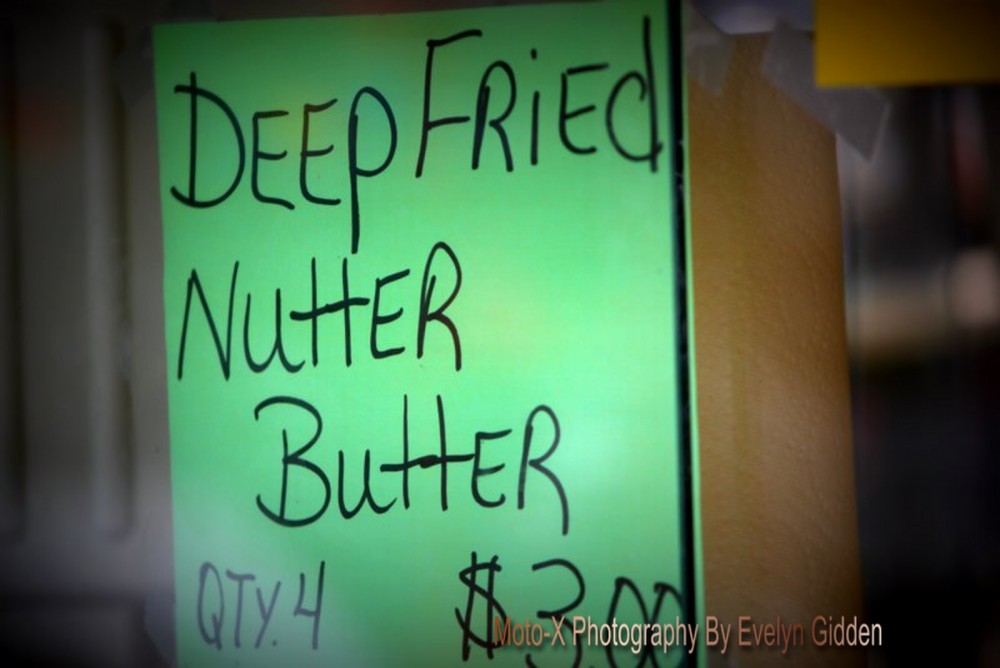 DEEP FRiEd
NuttER
ButtER
QTY. 4 $3.00
Moto-X Photography By Evelyn Gidden